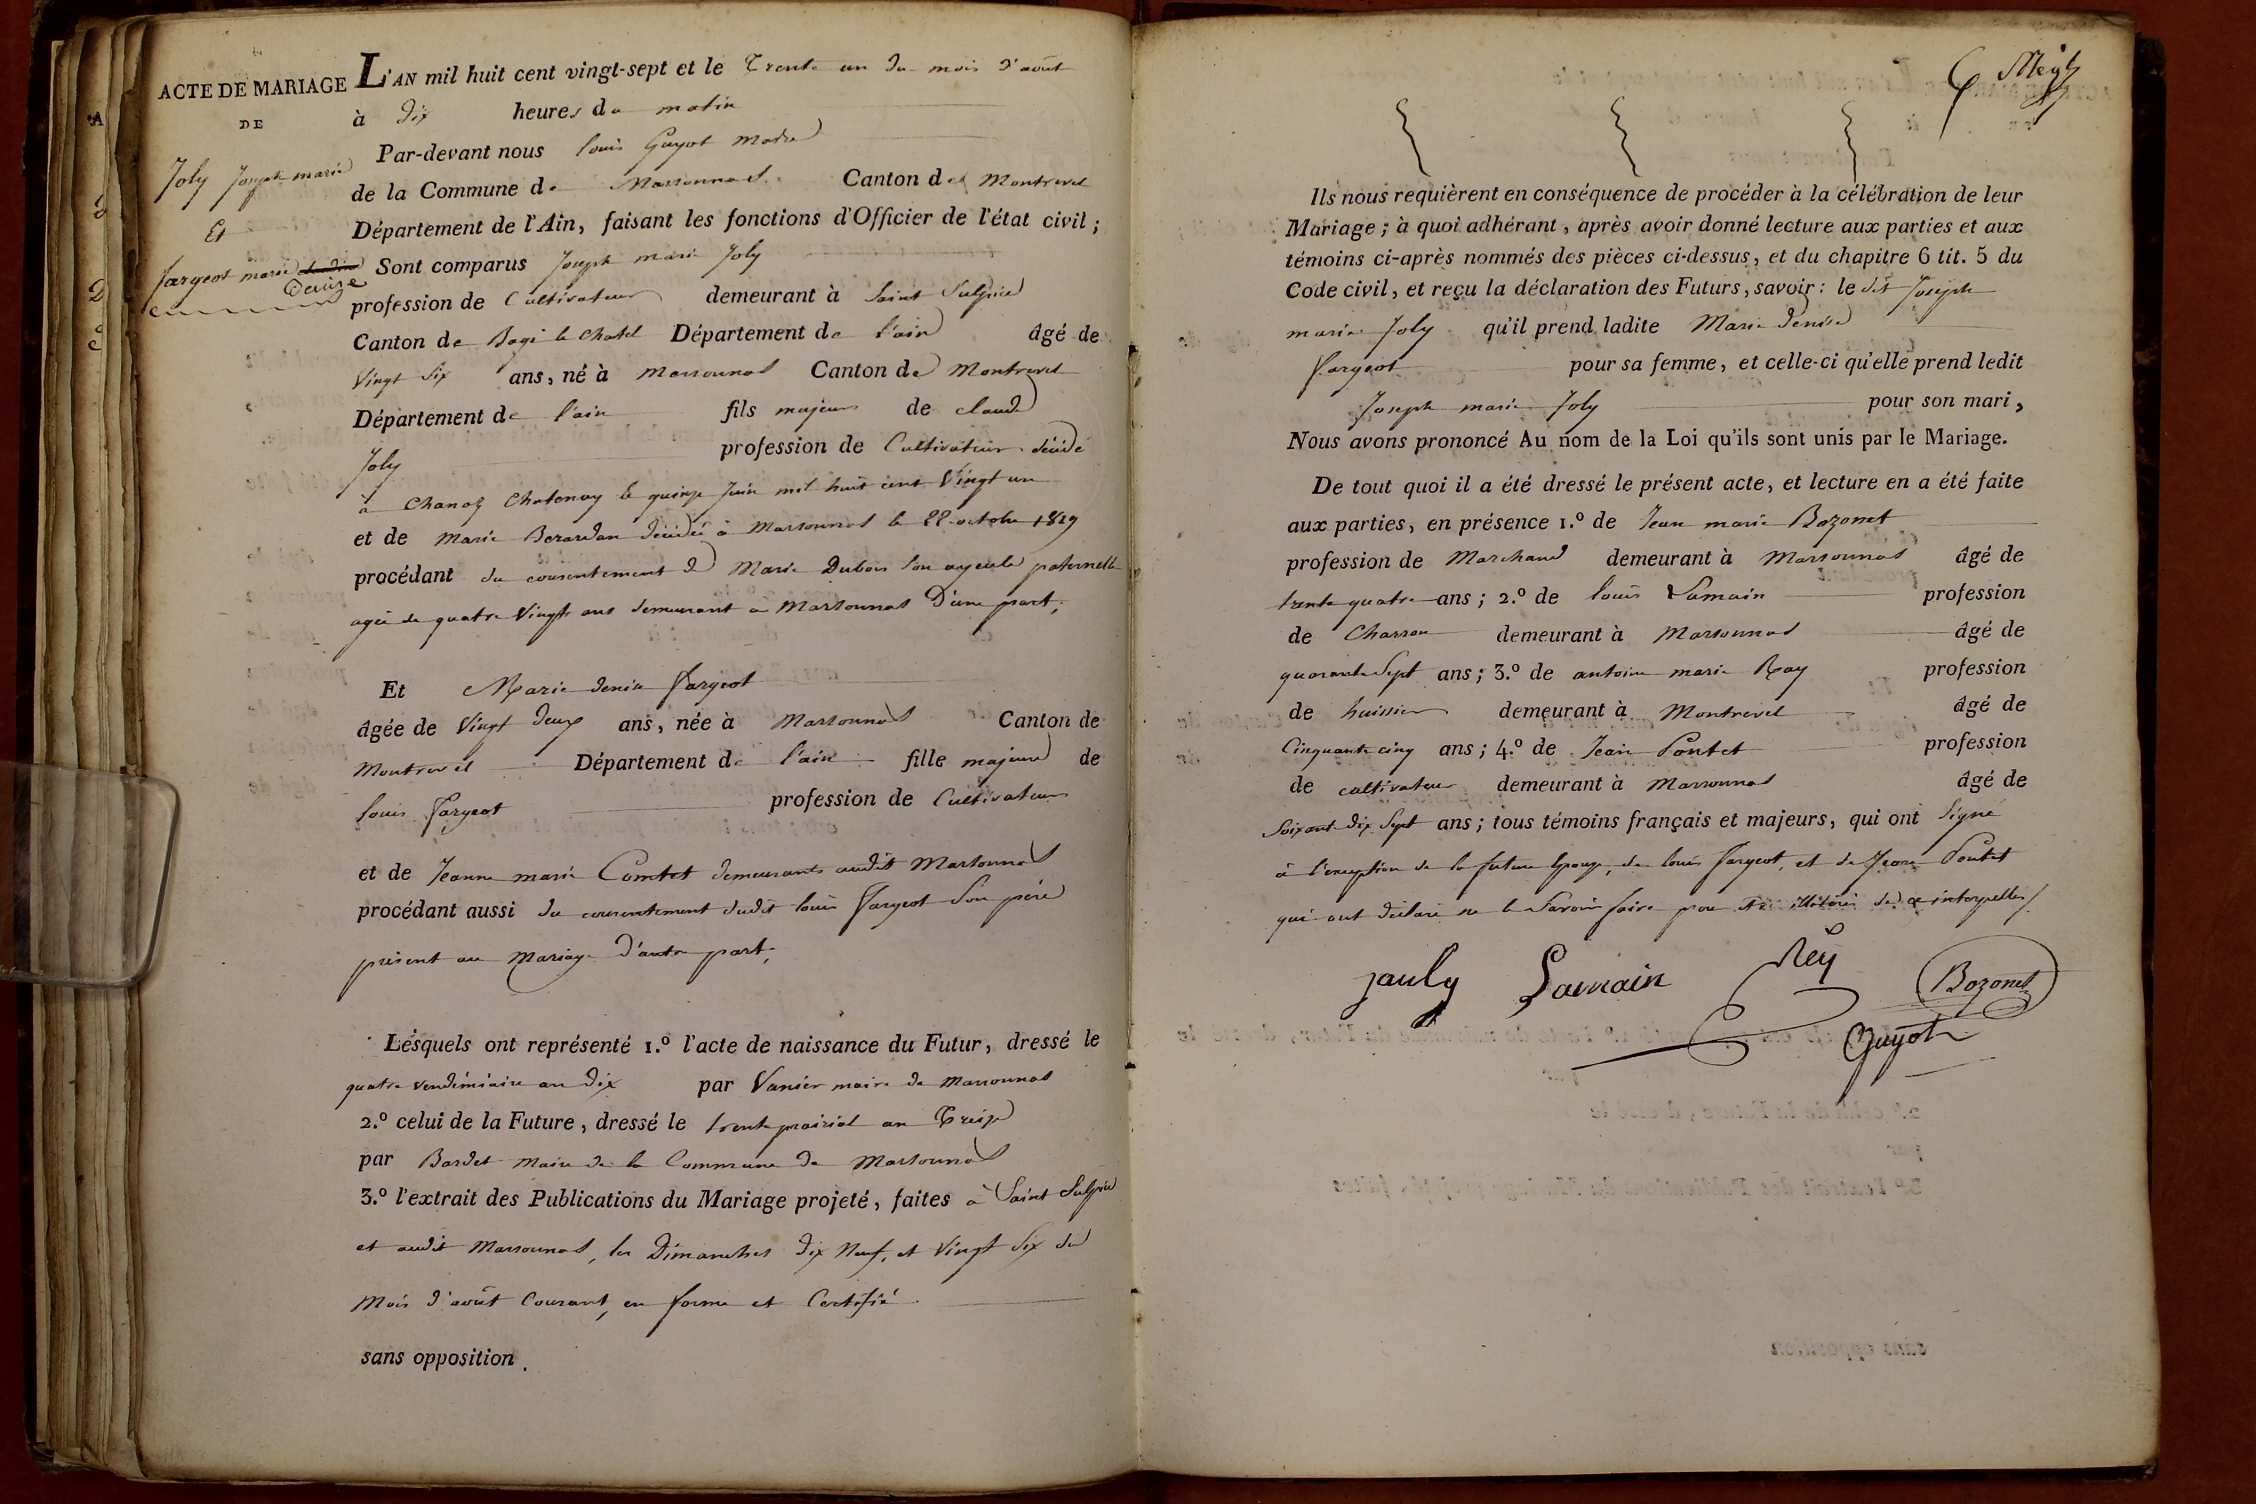 ACTE DE MARIAGE
DE
Joly Joseph marie
Et
fargeot marie
Denise
L'AN mil huit cent vingt-sept et le Trente un du mois d'août
à dix heures du matin
Par-devant nous louis Guyot Maire
de la Commune de Marsonnas Canton de Montrevel
Département de l'Ain, faisant les fonctions d'Officier de l'état civil ;
Sont comparus Joseph marie Joly
profession de Cultivateur demeurant à Saint Sulpice
Canton de Bagé le Chatel Département de l'ain âgé de
Vingt Six ans, né à Marsonnas Canton de Montrevel
Département de l'ain fils majeur de claude
Joly profession de Cultivateur décédé
à Chanoz Chatenay le quinze Juin mil huit cent Vingt un
et de Marie Berardan décédée à Marsonnas le 22 octobre 1819
procédant du consentement de Marie Dubois son ayeule paternelle
agée de quatre Vingts ans demeurant a Marsonnas D'une part,
Et Marie denise fargeot
âgée de Vingt deux ans, née à Marsonnas Canton de
Montrevel Département de l'ain fille majeure de
louis fargeot profession de Cultivateur
et de Jeanne marie Comtet demeurants audit Marsonnas
procédant aussi du consentement dudit louis fargeot Son père
présent au Mariage D'autre part,
Lesquels ont représenté 1.º l'acte de naissance du Futur, dressé le
quatre vendémiaire an dix par Vanier maire de Marsonnas
2.º celui de la Future, dressé le trente prairial an Treize
par Bardet Maire de la Commune de Marsonnas
3.º l'extrait des Publications du Mariage projeté, faites à Saint Sulpice
et audit Marsonnas, les Dimanches dix Neuf, et Vingt Six du
Mois d'août Courant, en forme et Certifié
sans opposition.
Ils nous requièrent en conséquence de procéder à la célébration de leur
Mariage ; à quoi adhérant, après avoir donné lecture aux parties et aux
témoins ci-après nommés des pièces ci-dessus, et du chapitre 6 tit. 5 du
Code civil, et reçu la déclaration des Futurs, savoir : le dit Joseph
marie Joly qu'il prend ladite Marie denise
fargeot pour sa femme, et celle-ci qu'elle prend ledit
Joseph marie Joly pour son mari,
Nous avons prononcé Au nom de la Loi qu'ils sont unis par le Mariage.
De tout quoi il a été dressé le présent acte, et lecture en a été faite
aux parties, en présence 1.º de Jean marie Bozonet
profession de Marchand demeurant à Marsonnas âgé de
trente quatre ans ; 2.º de louis Lamain profession
de Charron demeurant à Marsonnas âgé de
quarante Sept ans ; 3.º de antoine marie Ray profession
de huissier demeurant à Montrevel âgé de
Cinquante cinq ans ; 4.º de Jean Pontet profession
de cultivateur demeurant à Marsonnas âgé de
Soixante dix Sept ans ; tous témoins français et majeurs, qui ont Signé
à l'exception de la future Epouse, de louis fargeot, et de Jean Pontet
qui ont déclaré ne le Savoir faire pour être illétérés de ce interpellés
jauly Lamain Rey Bozonet
Guyot